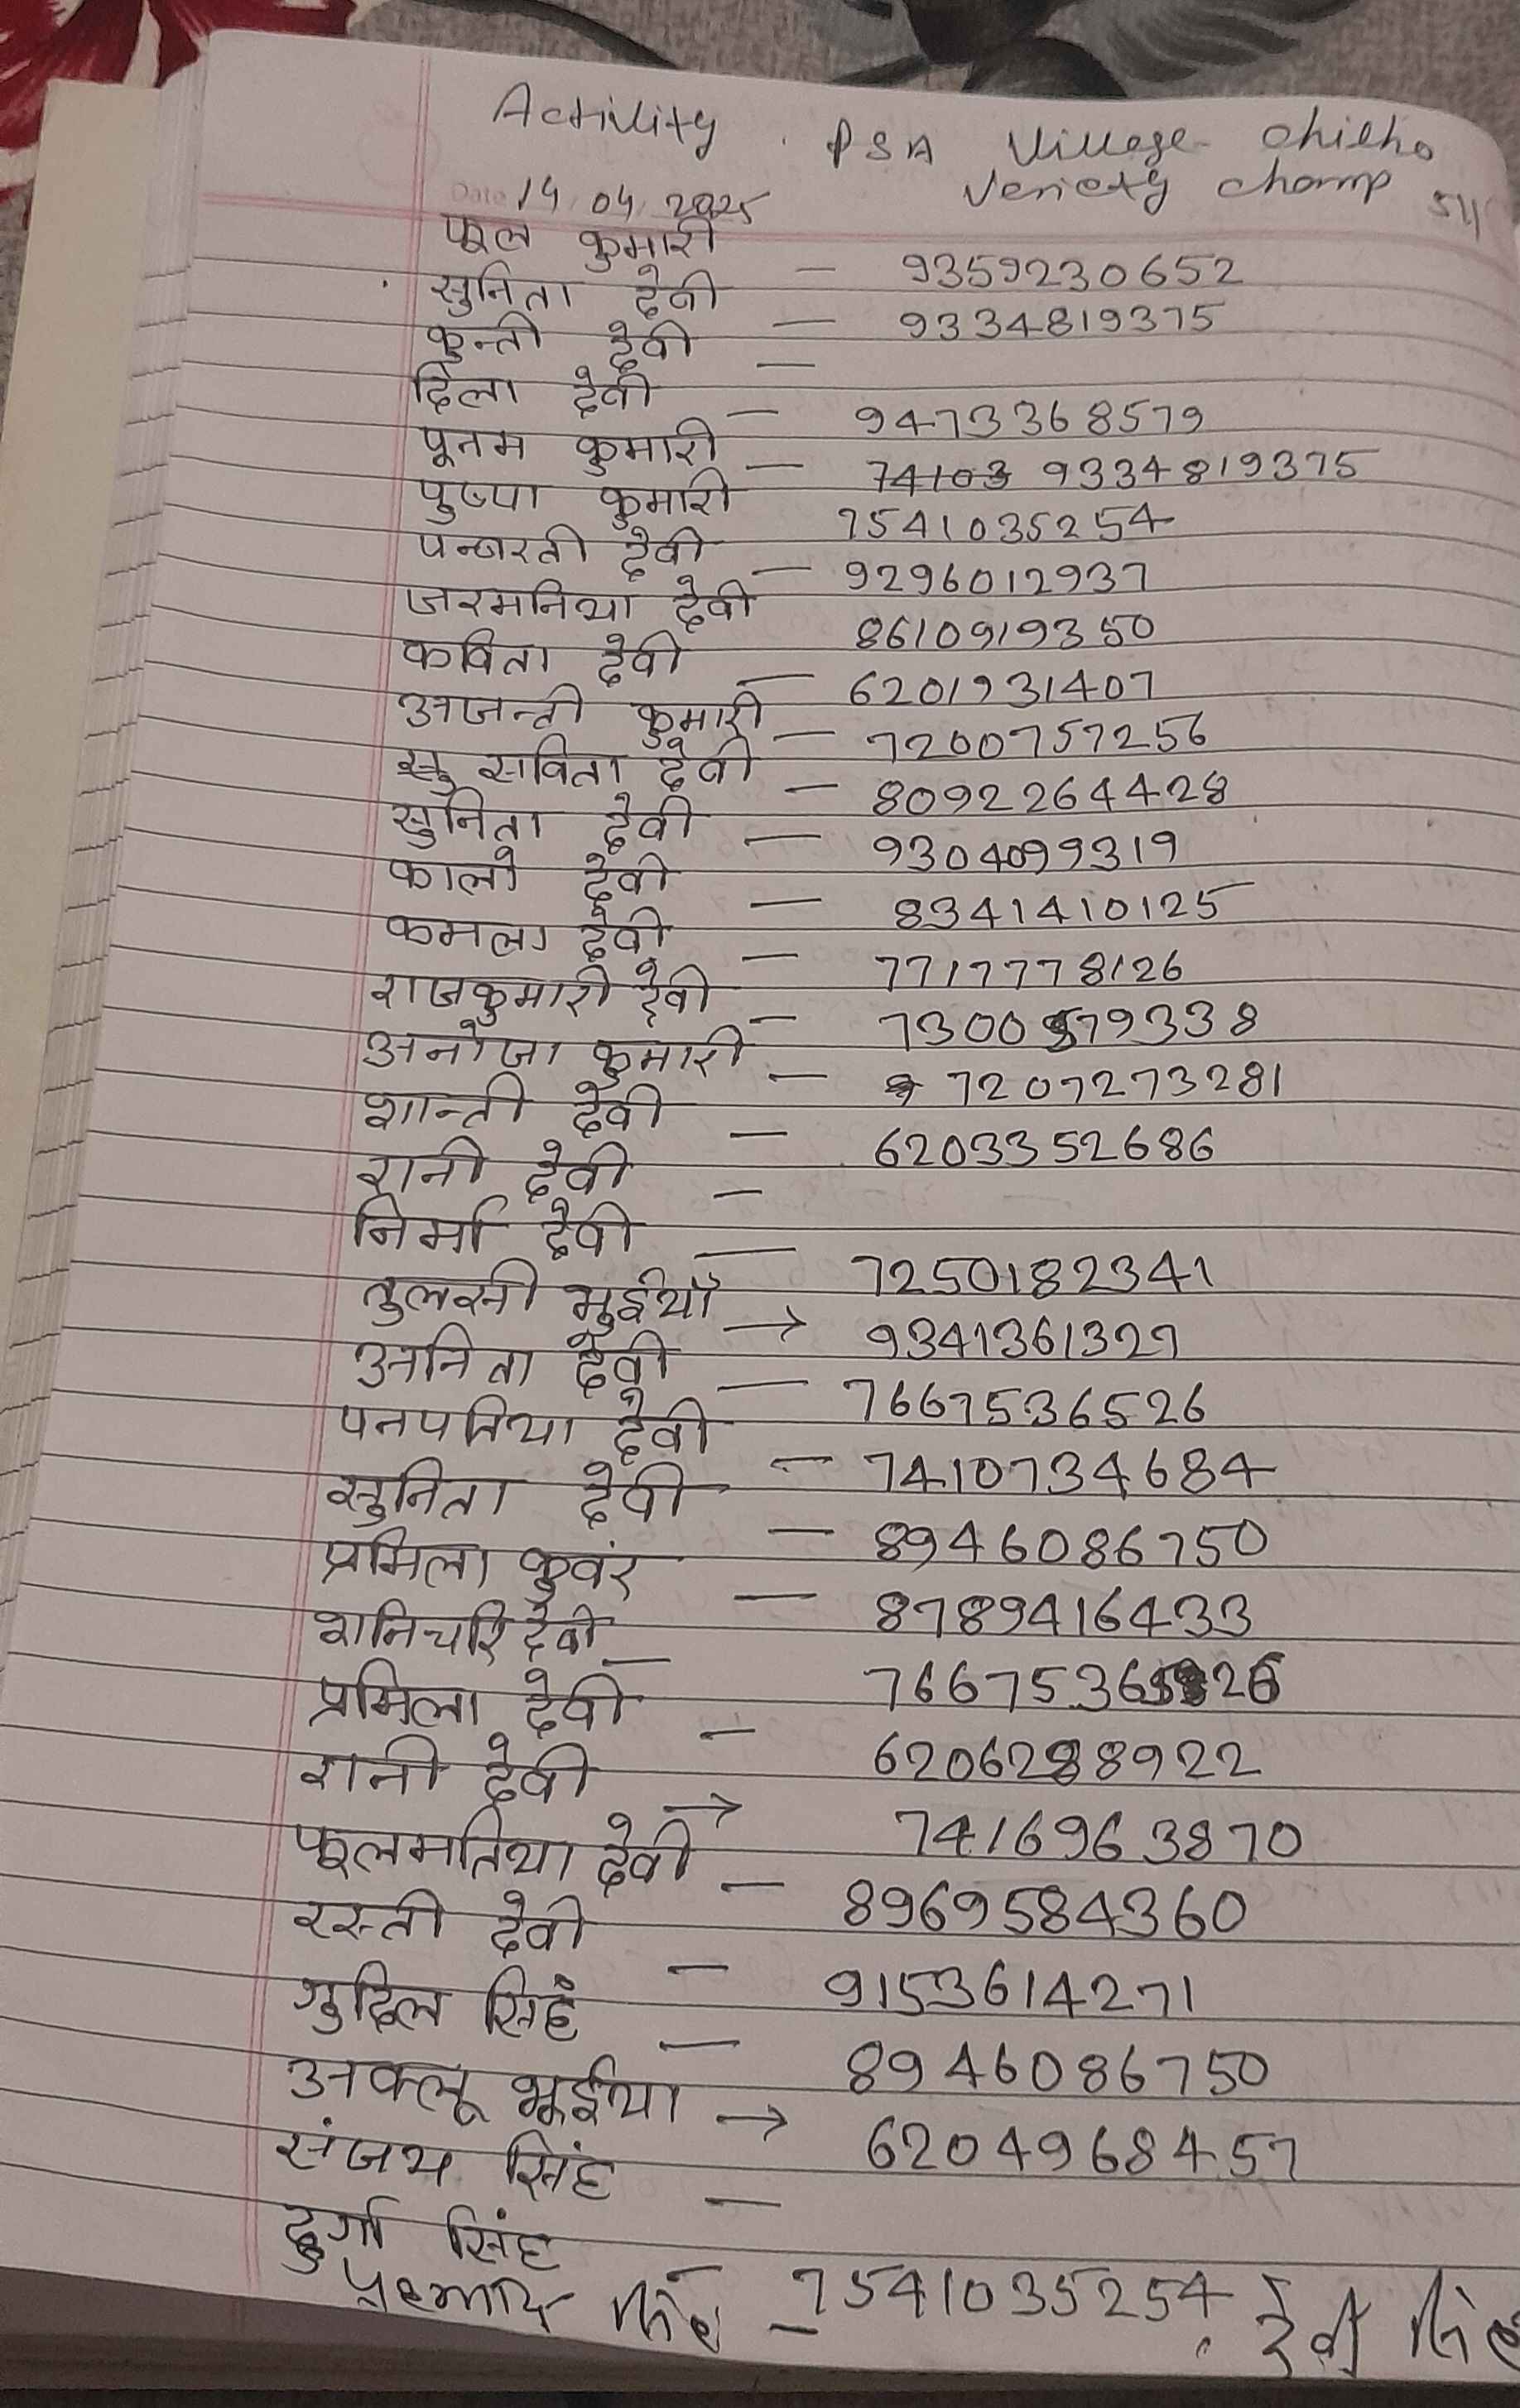 Activity . PSA Village - Chilho
14.04.2025 Veriety champ 511
फूल कुमारी - 9359230652
सुनिता देवी - 9334819375
कुन्ती देवी -
दिला देवी - 9473368579
पूनम कुमारी - 74103 9334819375
पुष्पा कुमारी 7541035254
पन्बरती देवी - 9296012937
जरमनिया देवी 8610919350
कविता देवी - 6201931407
अजन्ती कुमारी - 7200757256
सु सविता देवी - 8092264428
सुनिता देवी - 9304099319
कालो देवी - 8341410125
कमला देवी - 7717778126
राजकुमारी देवी - 7300579338
अनोजा कुमारी - 7207273281
शान्ती देवी - 6203352686
रानी देवी -
निर्मा देवी - 7250182341
तुलसी भुईयाँ → 9341361327
अनिता देवी - 7667536526
पनपतिया देवी - 7410734684
सुनिता देवी - 8946086750
प्रमिला कुवंर - 8789416433
शनिचरि देवी - 7667536526
प्रमिला देवी - 6206288922
रानी देवी → 7416963870
फूलमतिया देवी - 8969584360
रस्ती देवी - 9153614271
गुदिल सिहं - 8946086750
अकलू भूईया → 6204968457
संजय सिंह -
दुर्गा सिंह
सिंह - 7541035254, देवी सिंह